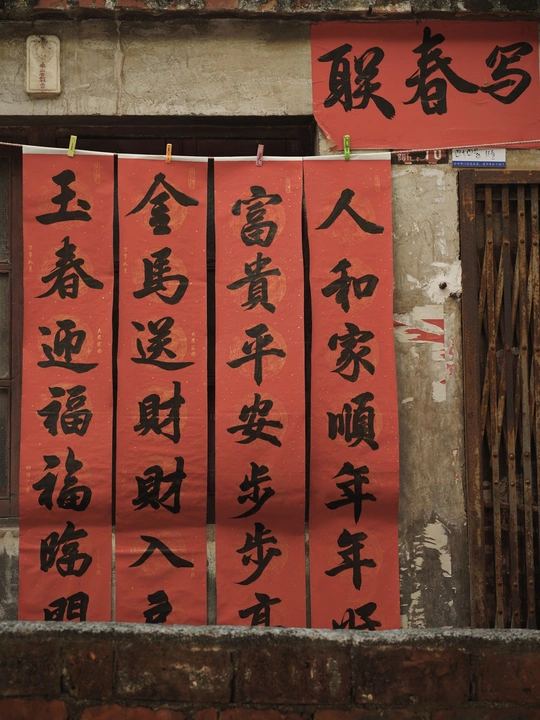 写春联
人和家順年年順
富貴平安步步高
金馬送財財入
玉春迎福福臨門